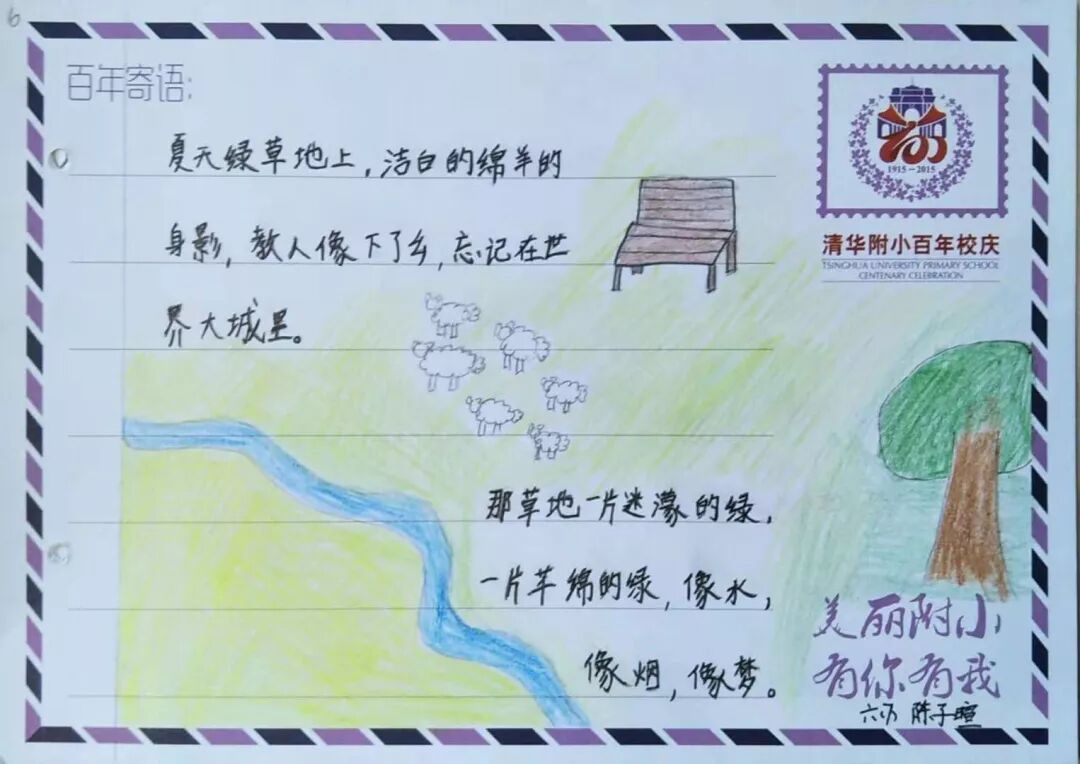 6
百年寄语:
1915-2015
清华附小百年校庆
TSINGHUA UNIVERSITY PRIMARY SCHOOL
CENTENARY CELEBRATION
夏天绿草地上,洁白的绵羊的
身影,教人像下了乡,忘记在世
界大城里。
那草地一片迷濛的绿,
一片芊绵的绿,像水,
像烟,像梦。
美丽附小
有你有我
陈子暄